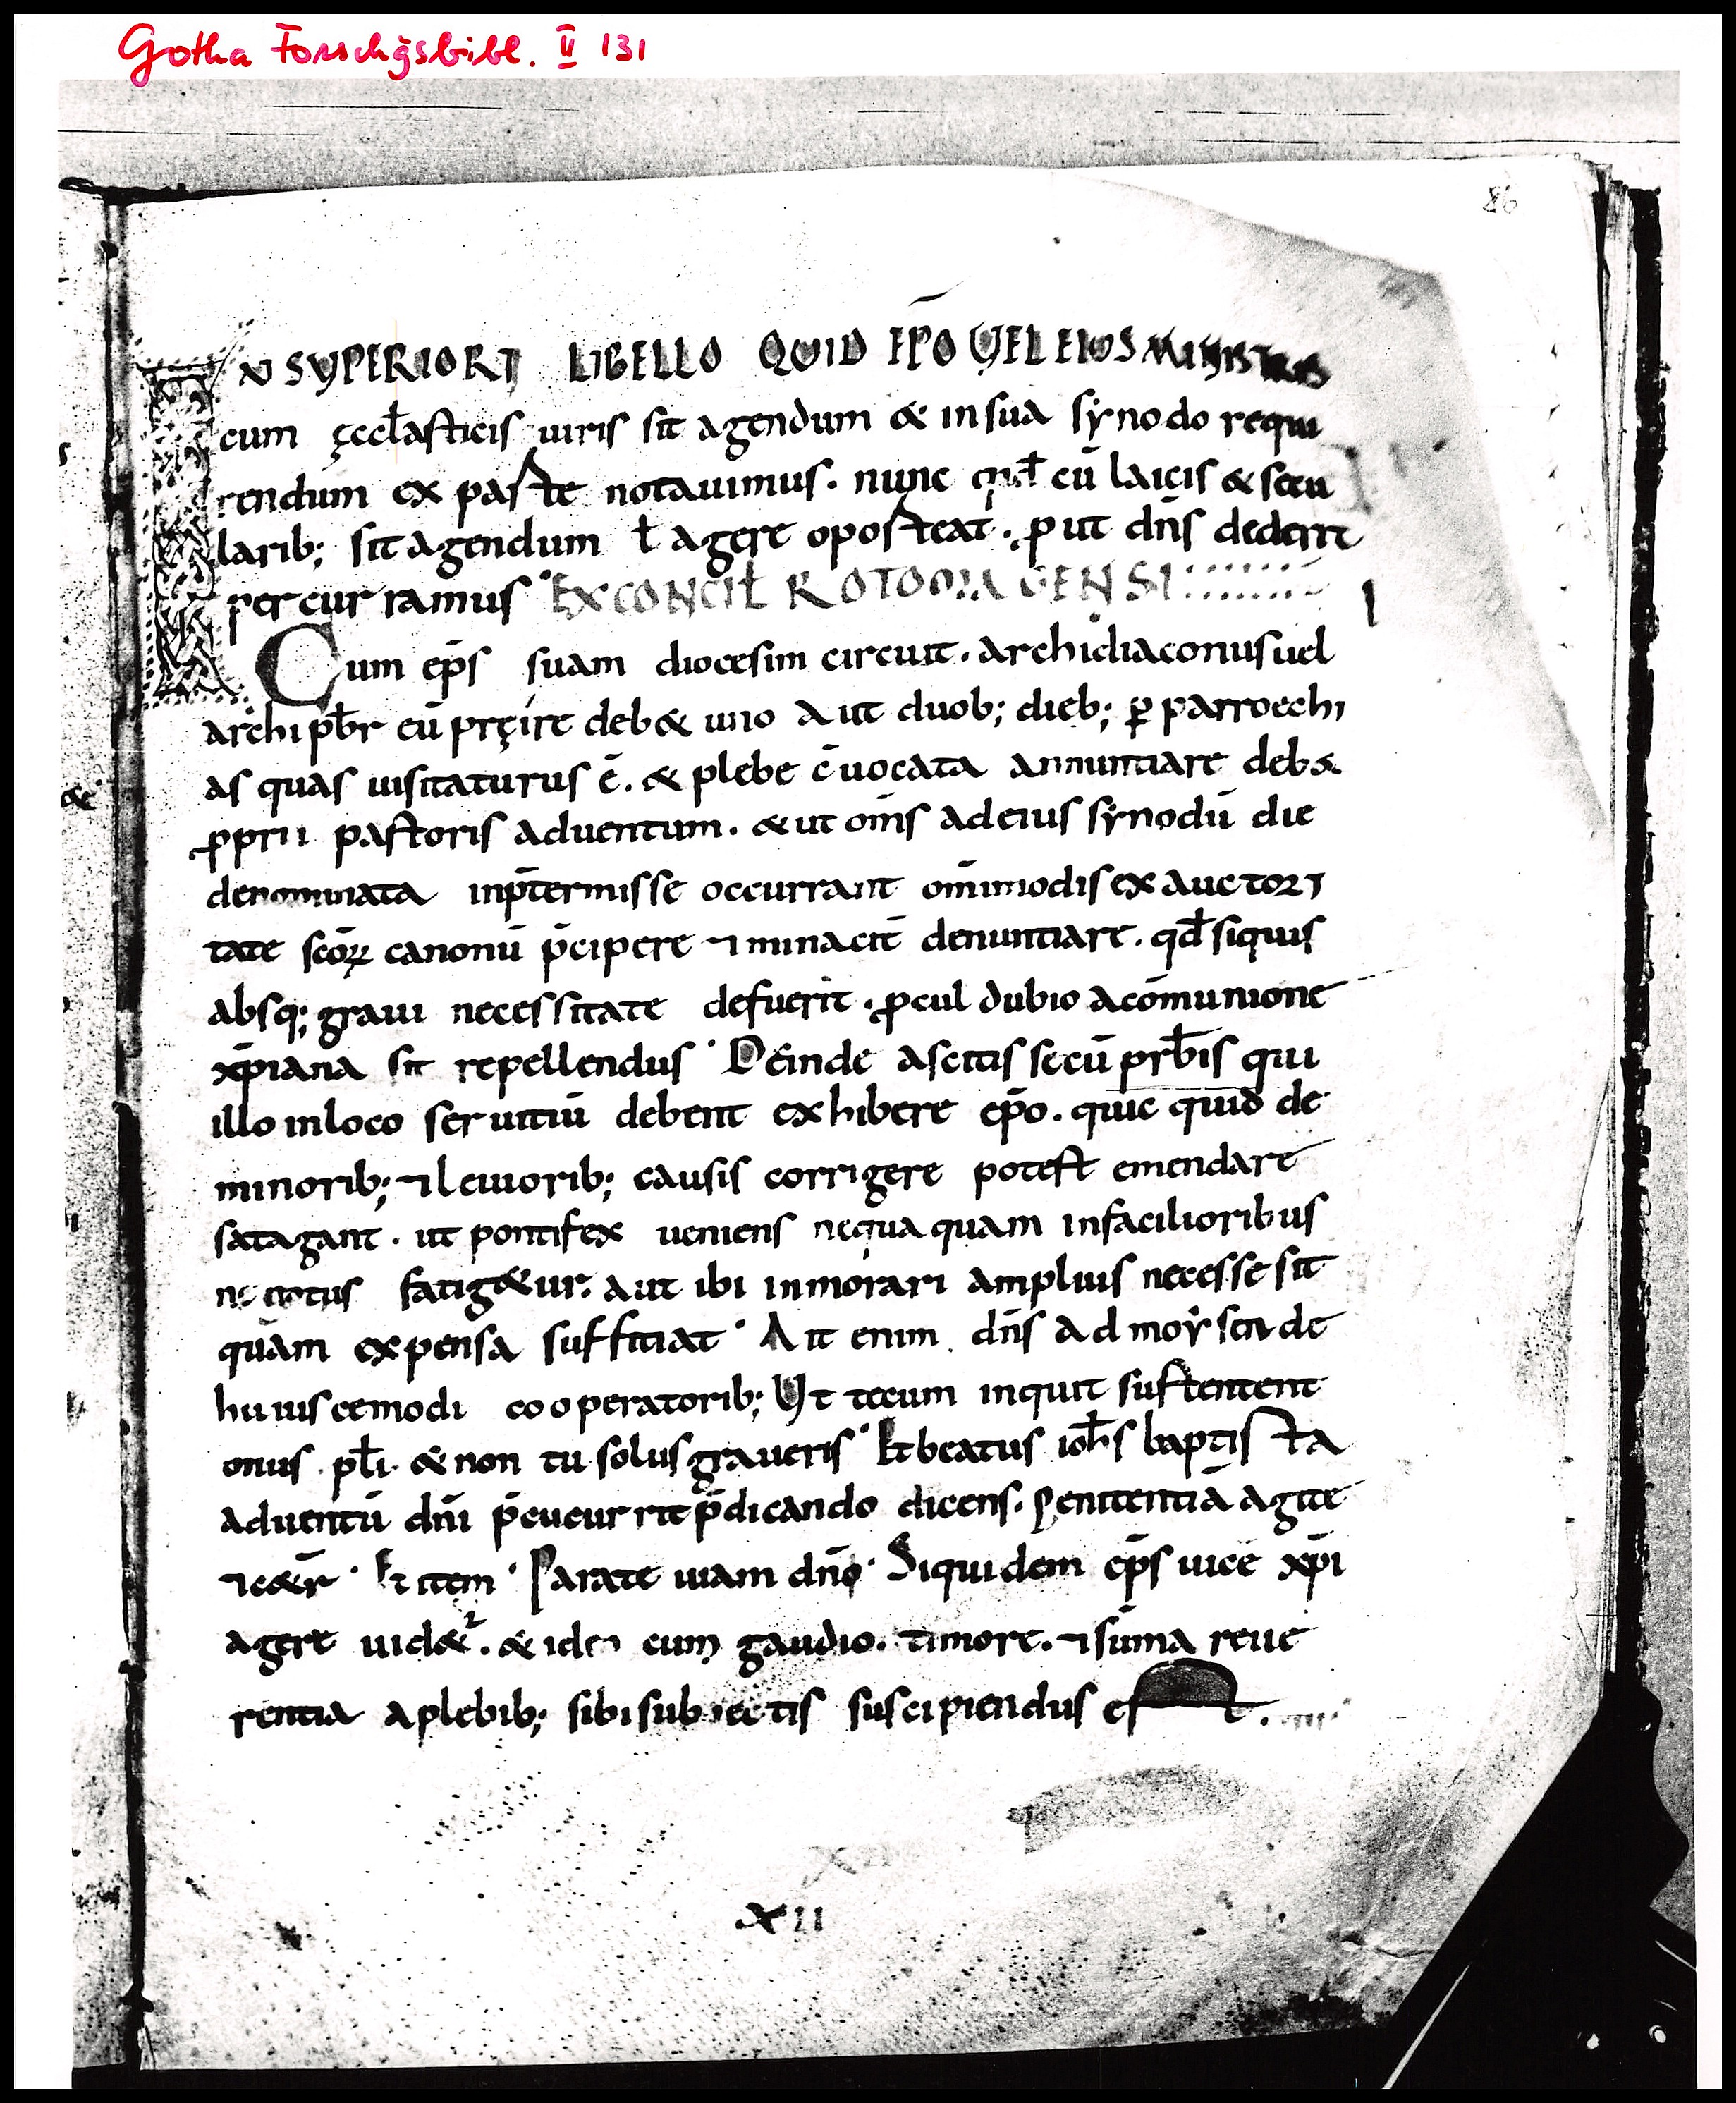 Gotha Forschgsbibl. II 131
86
IN SUPERIORI LIBELLO QUID EP̄O UEL EIUS MINISTRIS
cum ęccl̄asticis uiris sit agendum & in sua synodo requi
rendum ex parte notauimus. nunc qđ cū laicis & secu
larib; sit agendum ł agere oporteat. ꝓut dn̄s dederit
percurramus· EX CONCIŁ ROTOOMAGENSI
Cum ep̄s suam diocesim circuit. archidiaconus uel
archipb̄r eū pręire deb& uno aut duob; dieb; ꝑ parroechi
as quas uisitaturus ē. & plebe c̄uocata annuntiare deb&
ꝓprii pastoris aduentum. & ut om̄s ad eius synodū die
denominata inp̄termisse occurrant om̄imodis ex auctori
tate sc̄oꝝ canonū p̄cipere ⁊ minacit̄ denuntiare. qđ siquis
absq; graui necessitate defuerit. ꝓcul dubio a com̄unione
xp̄iana sit repellendus· Deinde ascitis secū prb̄is qui
illo in loco seruitiū debent exhibere ep̄o. quic quid de
minorib; ⁊ leuiorib; causis corrigere potest emendare
satagant. ut pontifex ueniens nequaquam in facilioribus
negotus fatig&ur. aut ibi inmorari amplius necesse sit
quam expensa suffitiat· Ait enim dn̄s ad moysen de
huiuscemodi cooperatorib; Ut tecum inquit sustentent
onus pł̄i & non tu solus graueris· Et beatus ioh̄s baptista
aduentū dn̄i p̄cucurrit p̄dicando dicens. Penitentiā agite
⁊ c&er̄· Et item· Parate uiam dn̄o· Siquidem ep̄s uicē xp̄i
agere uid&ur. & ideo cum gaudio. timore. ⁊ sum̄a reue
rentia a plebib; sibi subiectis suscipiendus est.
XII
XII